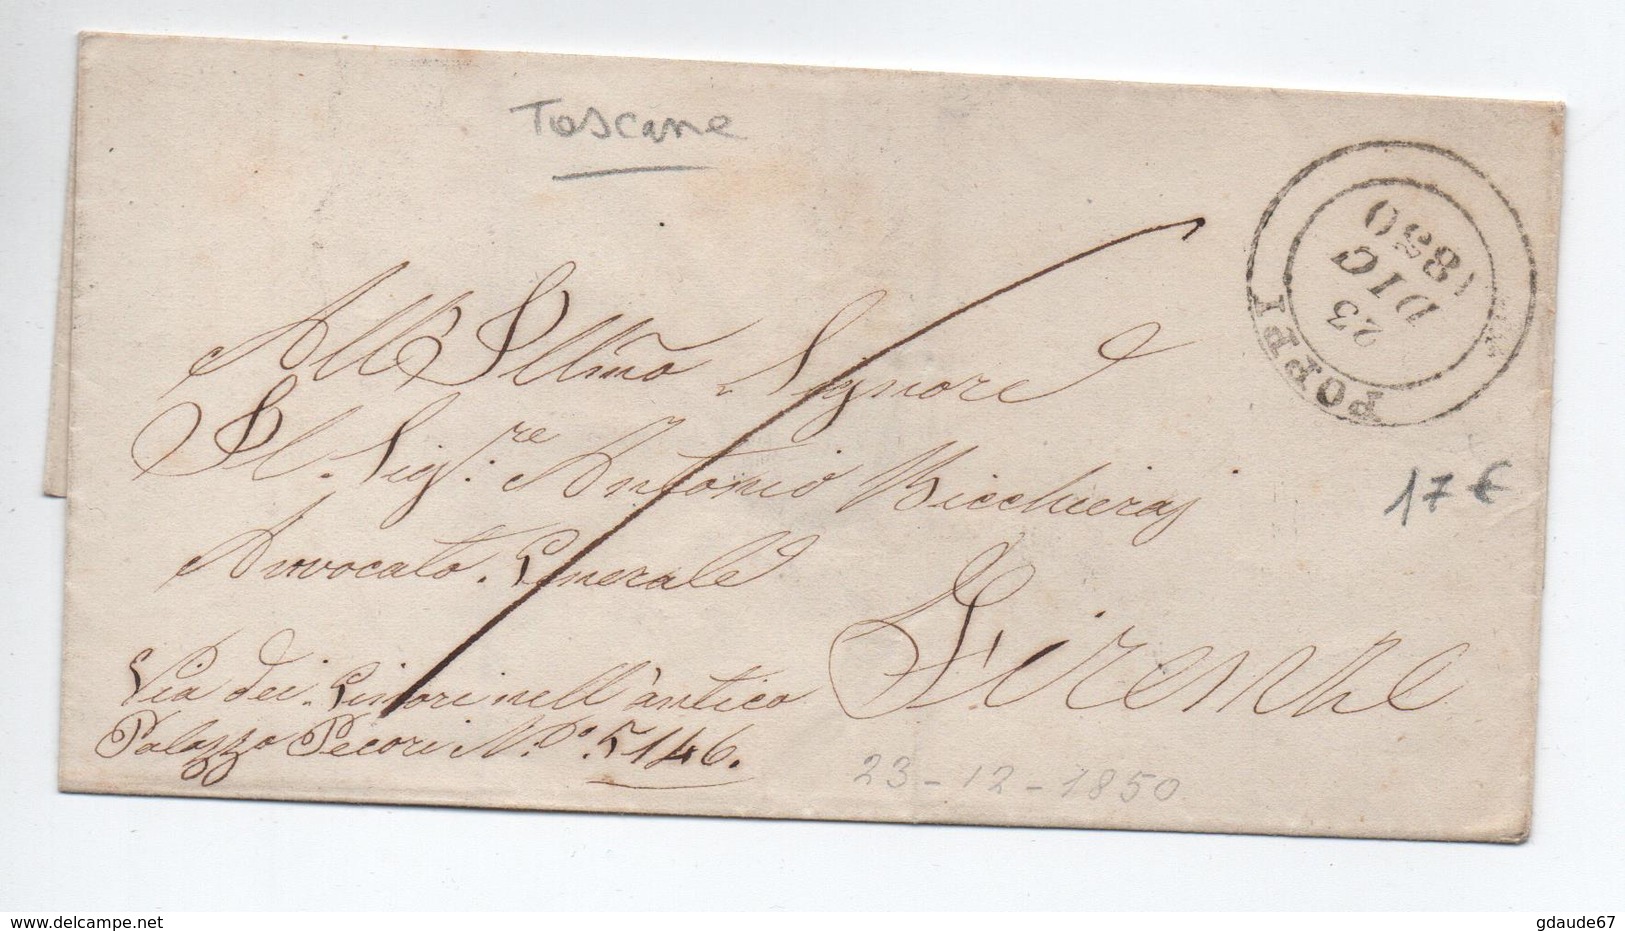 Toscane
POPPI
23
DIC
1850
All Illmo Signore
Il Sigre Antonio Bicchieraj
Avvocato Generale
Via dei Ginori nell'antico
Palazzo Pecori N.o 5146.
Firenze
17 €
23-12-1850
www.delcampe.net
gdaude67